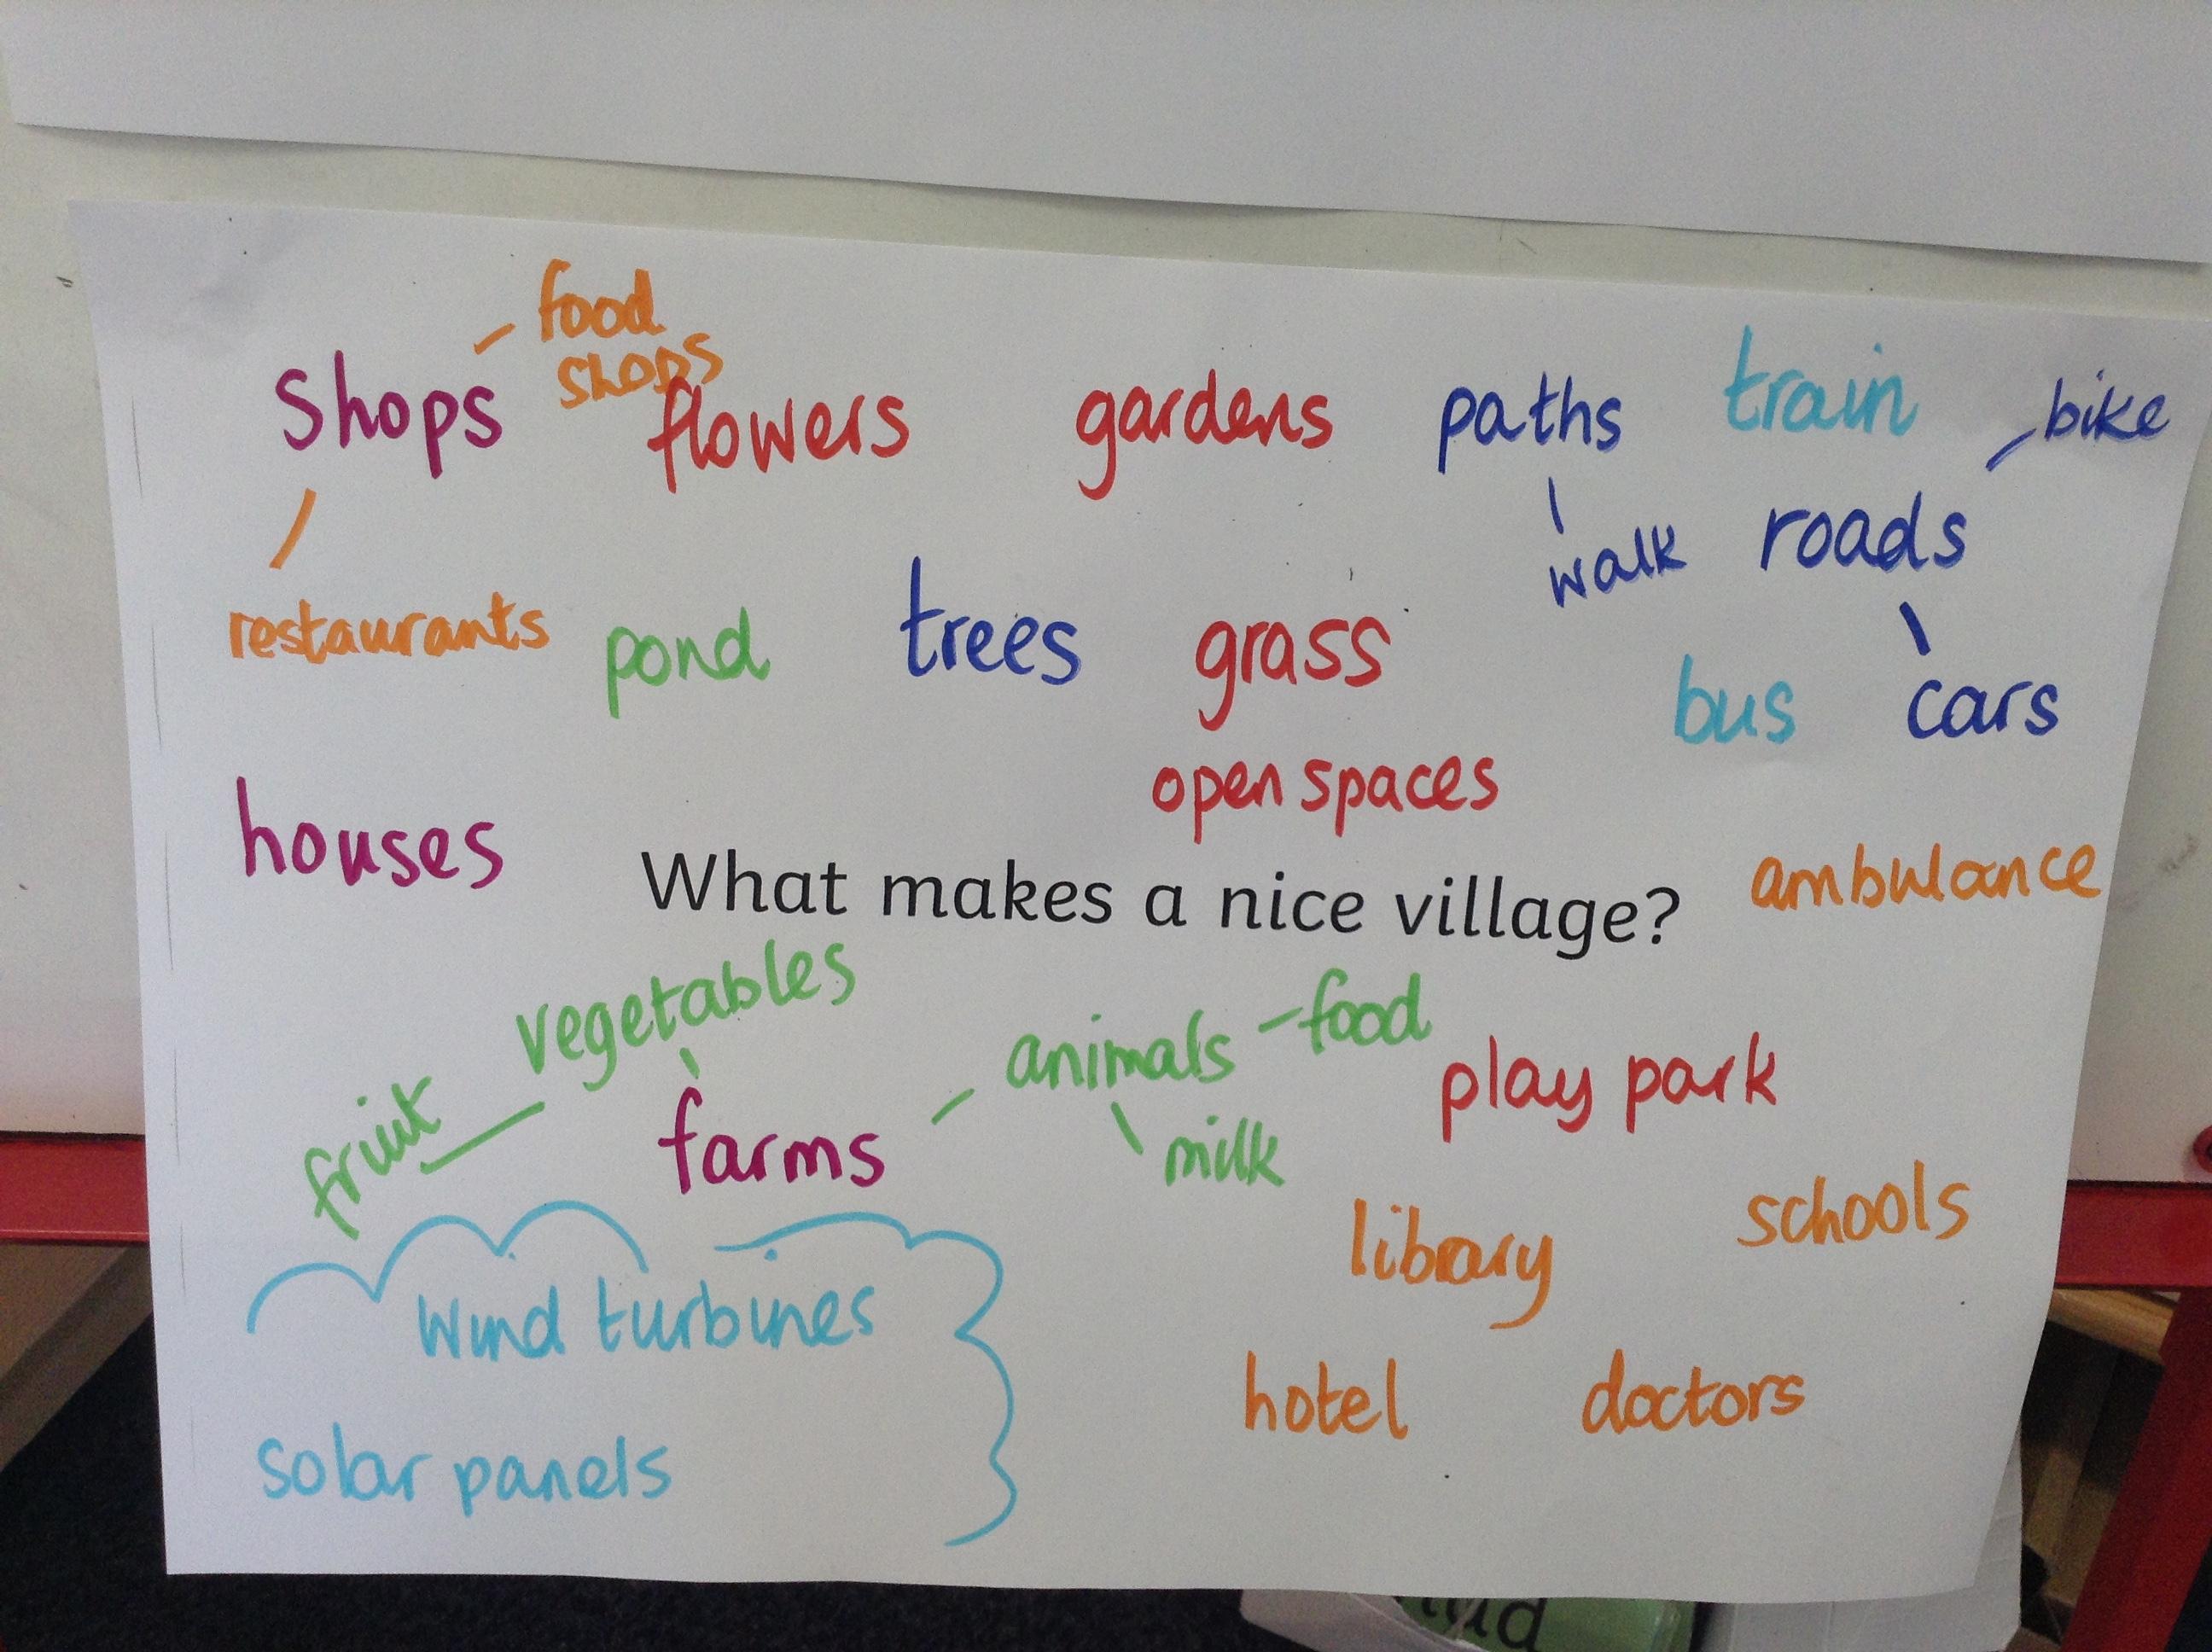 food
shops
shops
flowers
gardens
paths
train
bike
walk
roads
restaurants
pond
trees
grass
bus
cars
open spaces
houses
What makes a nice village?
ambulance
vegetables
animals
food
fruit
farms
milk
play park
library
schools
wind turbines
hotel
doctors
solar panels